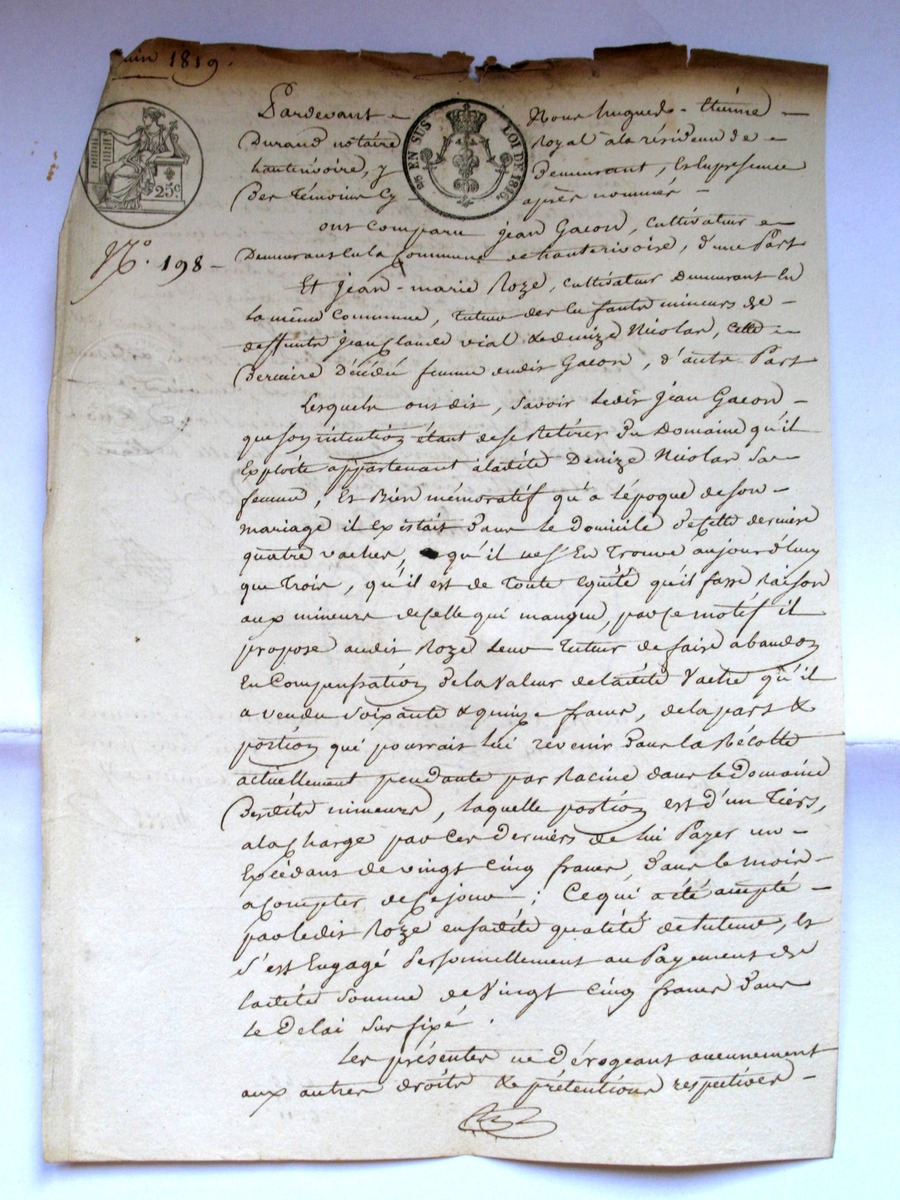 juin 1819.
Pardevant Nous hugues-Etiénne
Durand notaire Royal à la résidence de
hauterivoire, y Demeurant, En la présence
Des Témoins Cy après nommés
25 EN SUS LOI DE 1816.
25c
N.º 198
ont Comparu jean Gacon, Cultivateur
Demeurant en la Commune de hauterivoire, d'une Part
Et jean-marie Roze, cultivateur Demeurant En
la même Commune, tuteur des Enfants mineurs de
deffunts jean Claude vial & denize Nicolas, cette
Derniére Décédée femme dudit Gacon, d'autre Part
Lesquels ont dit, Savoir Ledit jean Gacon
que son intention étant de se Retirer Du Domaine qu'il
Exploite appartenant à ladite Denize Nicolas Sa
femme, Et Bien mémoratif qu'à l'époque de son
mariage il Existait Dans le Domicile De Cette derniere
quatre vaches, qu'il ne s'En Trouve aujourd'huy
que Trois, qu'il est de Toute Equité qu'il fasse Raison
aux mineurs de Celle qui manque, par ce motif il
propose audit Roze Leur Tuteur de faire abandon
En Compensation De la Valeur de ladite Vache qu'il
a vendu Soixante & quinze francs, de la part &
portion qui pourrait Lui revenir Dans la Récolte
actuellement pendante par Racine dans le Domaine
Desdits mineurs, laquelle portion est d'un Tiers,
a la Charge par Ces Derniers de lui Payer un
Excédant de vingt Cinq francs, Dans le mois
a Compter de Ce jour; Ce qui a été accepté
par ledit Roze en sadite qualité de tuteur, Et
S'est Engagé Personnellement au Payement de
ladite Somme de Vingt Cinq francs Dans
Le Délai Sus fixé.
Les présentes ne Dérogeant aucunement
aux autres droits & prétentions respectives